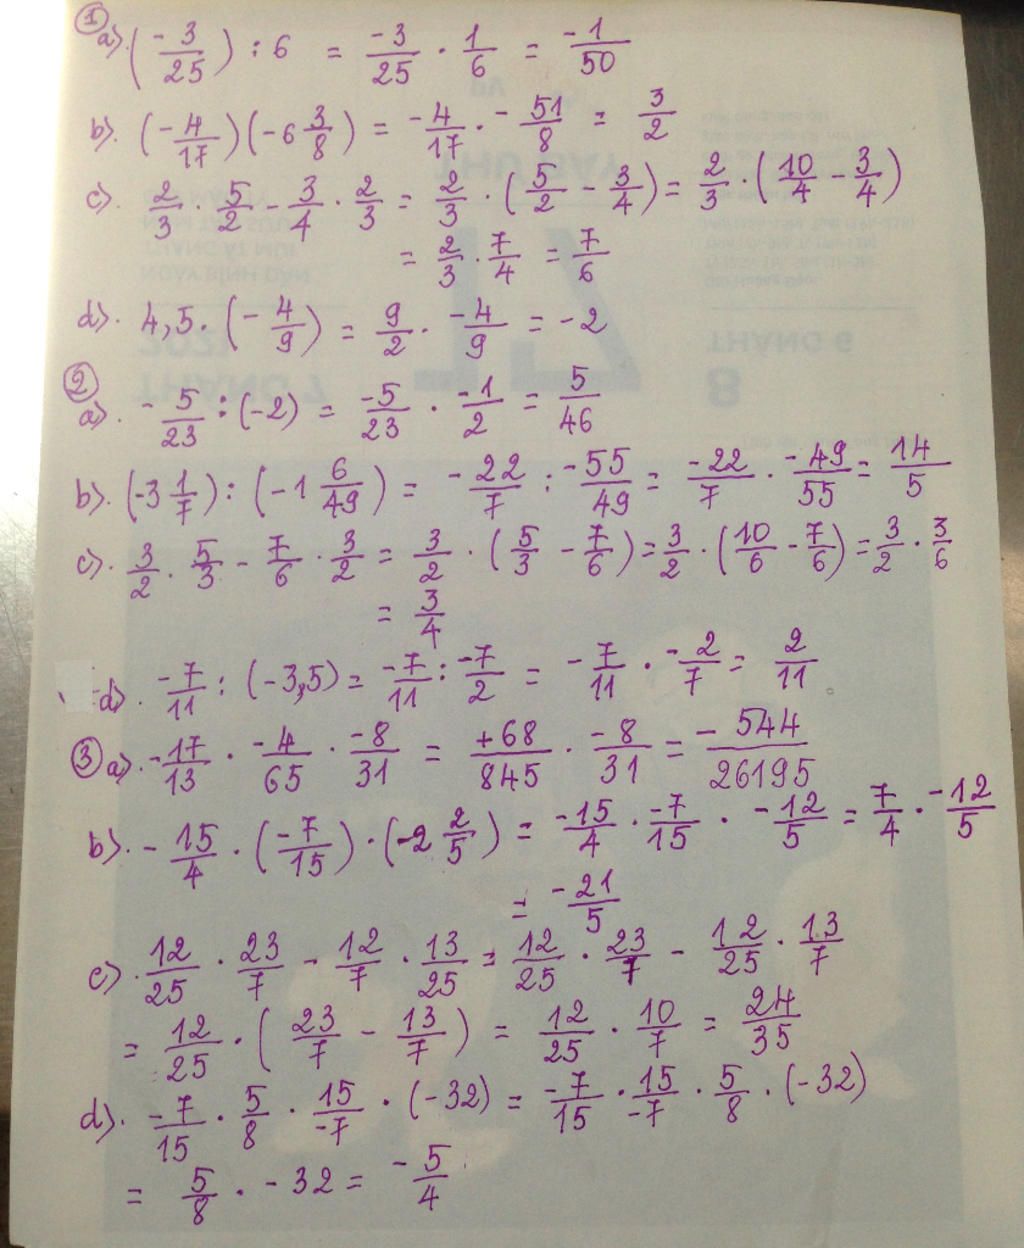 ① a) (-3/25) : 6 = -3/25 . 1/6 = -1/50
b). (-4/17)(-6 3/8) = -4/17 . -51/8 = 3/2
c). 2/3 . 5/2 - 3/4 . 2/3 = 2/3 . (5/2 - 3/4) = 2/3 . (10/4 - 3/4)
= 2/3 . 7/4 = 7/6
d). 4,5 . (-4/9) = 9/2 . -4/9 = -2
②
a). -5/23 : (-2) = -5/23 . -1/2 = 5/46
b). (-3 1/7) : (-1 6/49) = -22/7 : -55/49 = -22/7 . -49/55 = 14/5
c). 3/2 . 5/3 - 7/6 . 3/2 = 3/2 . (5/3 - 7/6) = 3/2 . (10/6 - 7/6) = 3/2 . 3/6
= 3/4
d). -7/11 : (-3,5) = -7/11 : -7/2 = -7/11 . -2/7 = 2/11
③ a). -17/13 . -4/65 . -8/31 = +68/845 . -8/31 = -544/26195
b). -15/4 . (-7/15) . (-2 2/5) = -15/4 . -7/15 . -12/5 = 7/4 . -12/5
= -21/5
c). 12/25 . 23/7 - 12/7 . 13/25 = 12/25 . 23/7 - 12/25 . 13/7
= 12/25 . (23/7 - 13/7) = 12/25 . 10/7 = 24/35
d). -7/15 . 5/8 . 15/-7 . (-32) = -7/15 . 15/-7 . 5/8 . (-32)
= 5/8 . -32 = -5/4
THÁNG 7
THÁNG 6
8
17